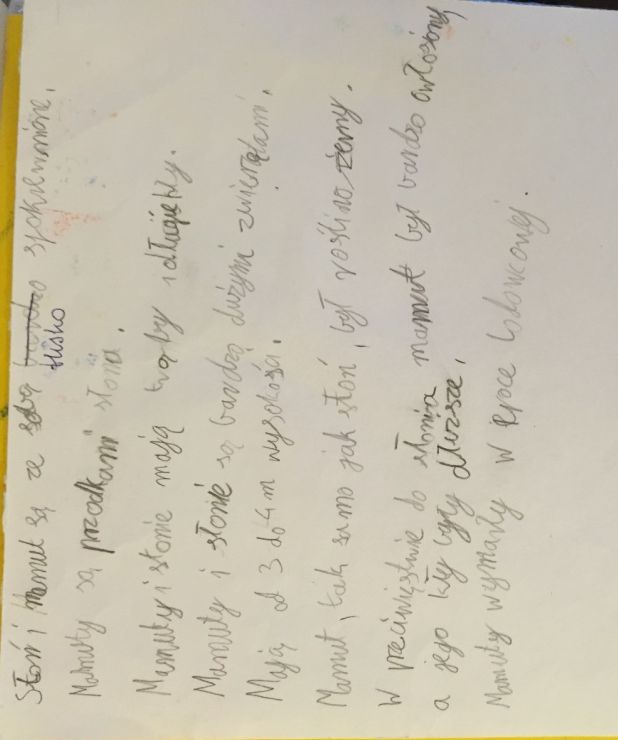 Słoń i Mamut są ze sobą bardzo spokrewnione.
blisko
Mamuty są przodkami słonia.
Mamuty i słonie mają trąby i długie kły.
Mamuty i słonie są bardzo dużymi zwierzętami.
Mają od 3 do 4 m wysokości.
Mamut, tak samo jak słoń, był roślinożerny.
W przeciwięstwie do słonia mamut był bardzo owłosiony,
a jego kły były dłuższe.
Mamuty wymarły w epoce lodowcowej.